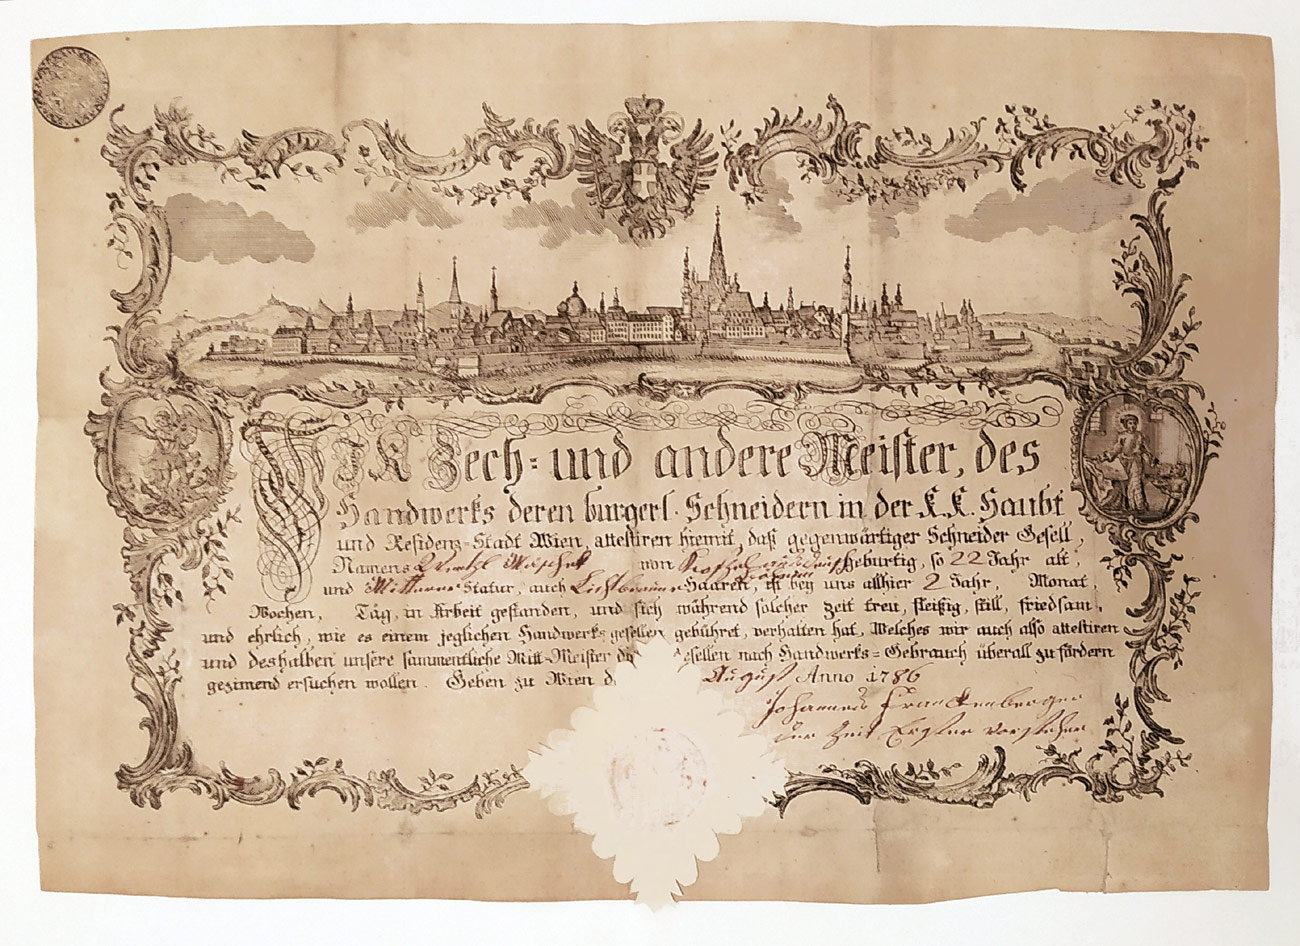 WIR Zech= und andere Meister, des
Handwerks deren burgerl. Schneidern in der K.K. Haubt
und Residenz=Stadt Wien, attestiren hiemit, daß gegenwärtiger Schneider Gesell,
Namens von gebürtig, so 22 Jahr alt,
und Mitterer Statur, auch Lichtbraunen Haaren, ist bey uns allhier 2 Jahr, Monat,
Wochen, Täg, in Arbeit gestanden, und sich während solcher Zeit treu, fleißig, still, friedsam,
und ehrlich, wie es einem jeglichen Handwerks=gesellen gebühret, verhalten hat, Welches wir auch also attestiren
und deshalben unsere sammentliche Mitt=Meister esellen nach Handwerks=Gebrauch überall zu fördern
gezimend ersuchen wollen. Geben zu Wien d August Anno 1786
Johannes Franckenberger
der Zeit Erster Vorsteher